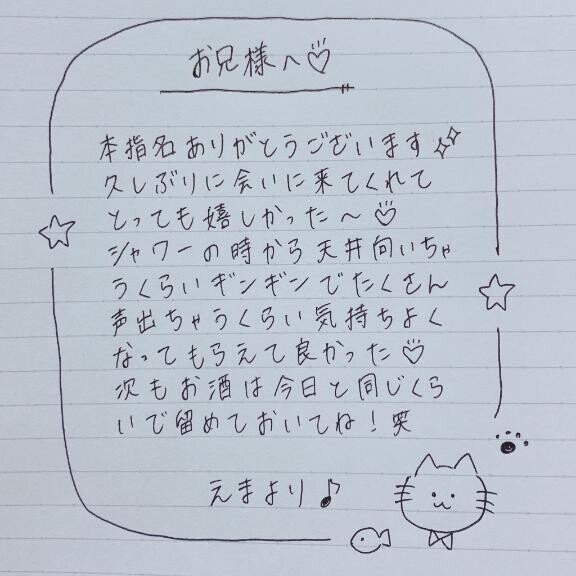 お兄様へ♡
本指名ありがとうございます✨
久しぶりに会いに来てくれて
とっても嬉しかった〜♡
シャワーの時から天井向いちゃ
うくらいギンギンでたくさん
声出ちゃうくらい気持ちよく
なってもらえて良かった♡
次もお酒は今日と同じくら
いで留めておいてね!笑
えまより♪